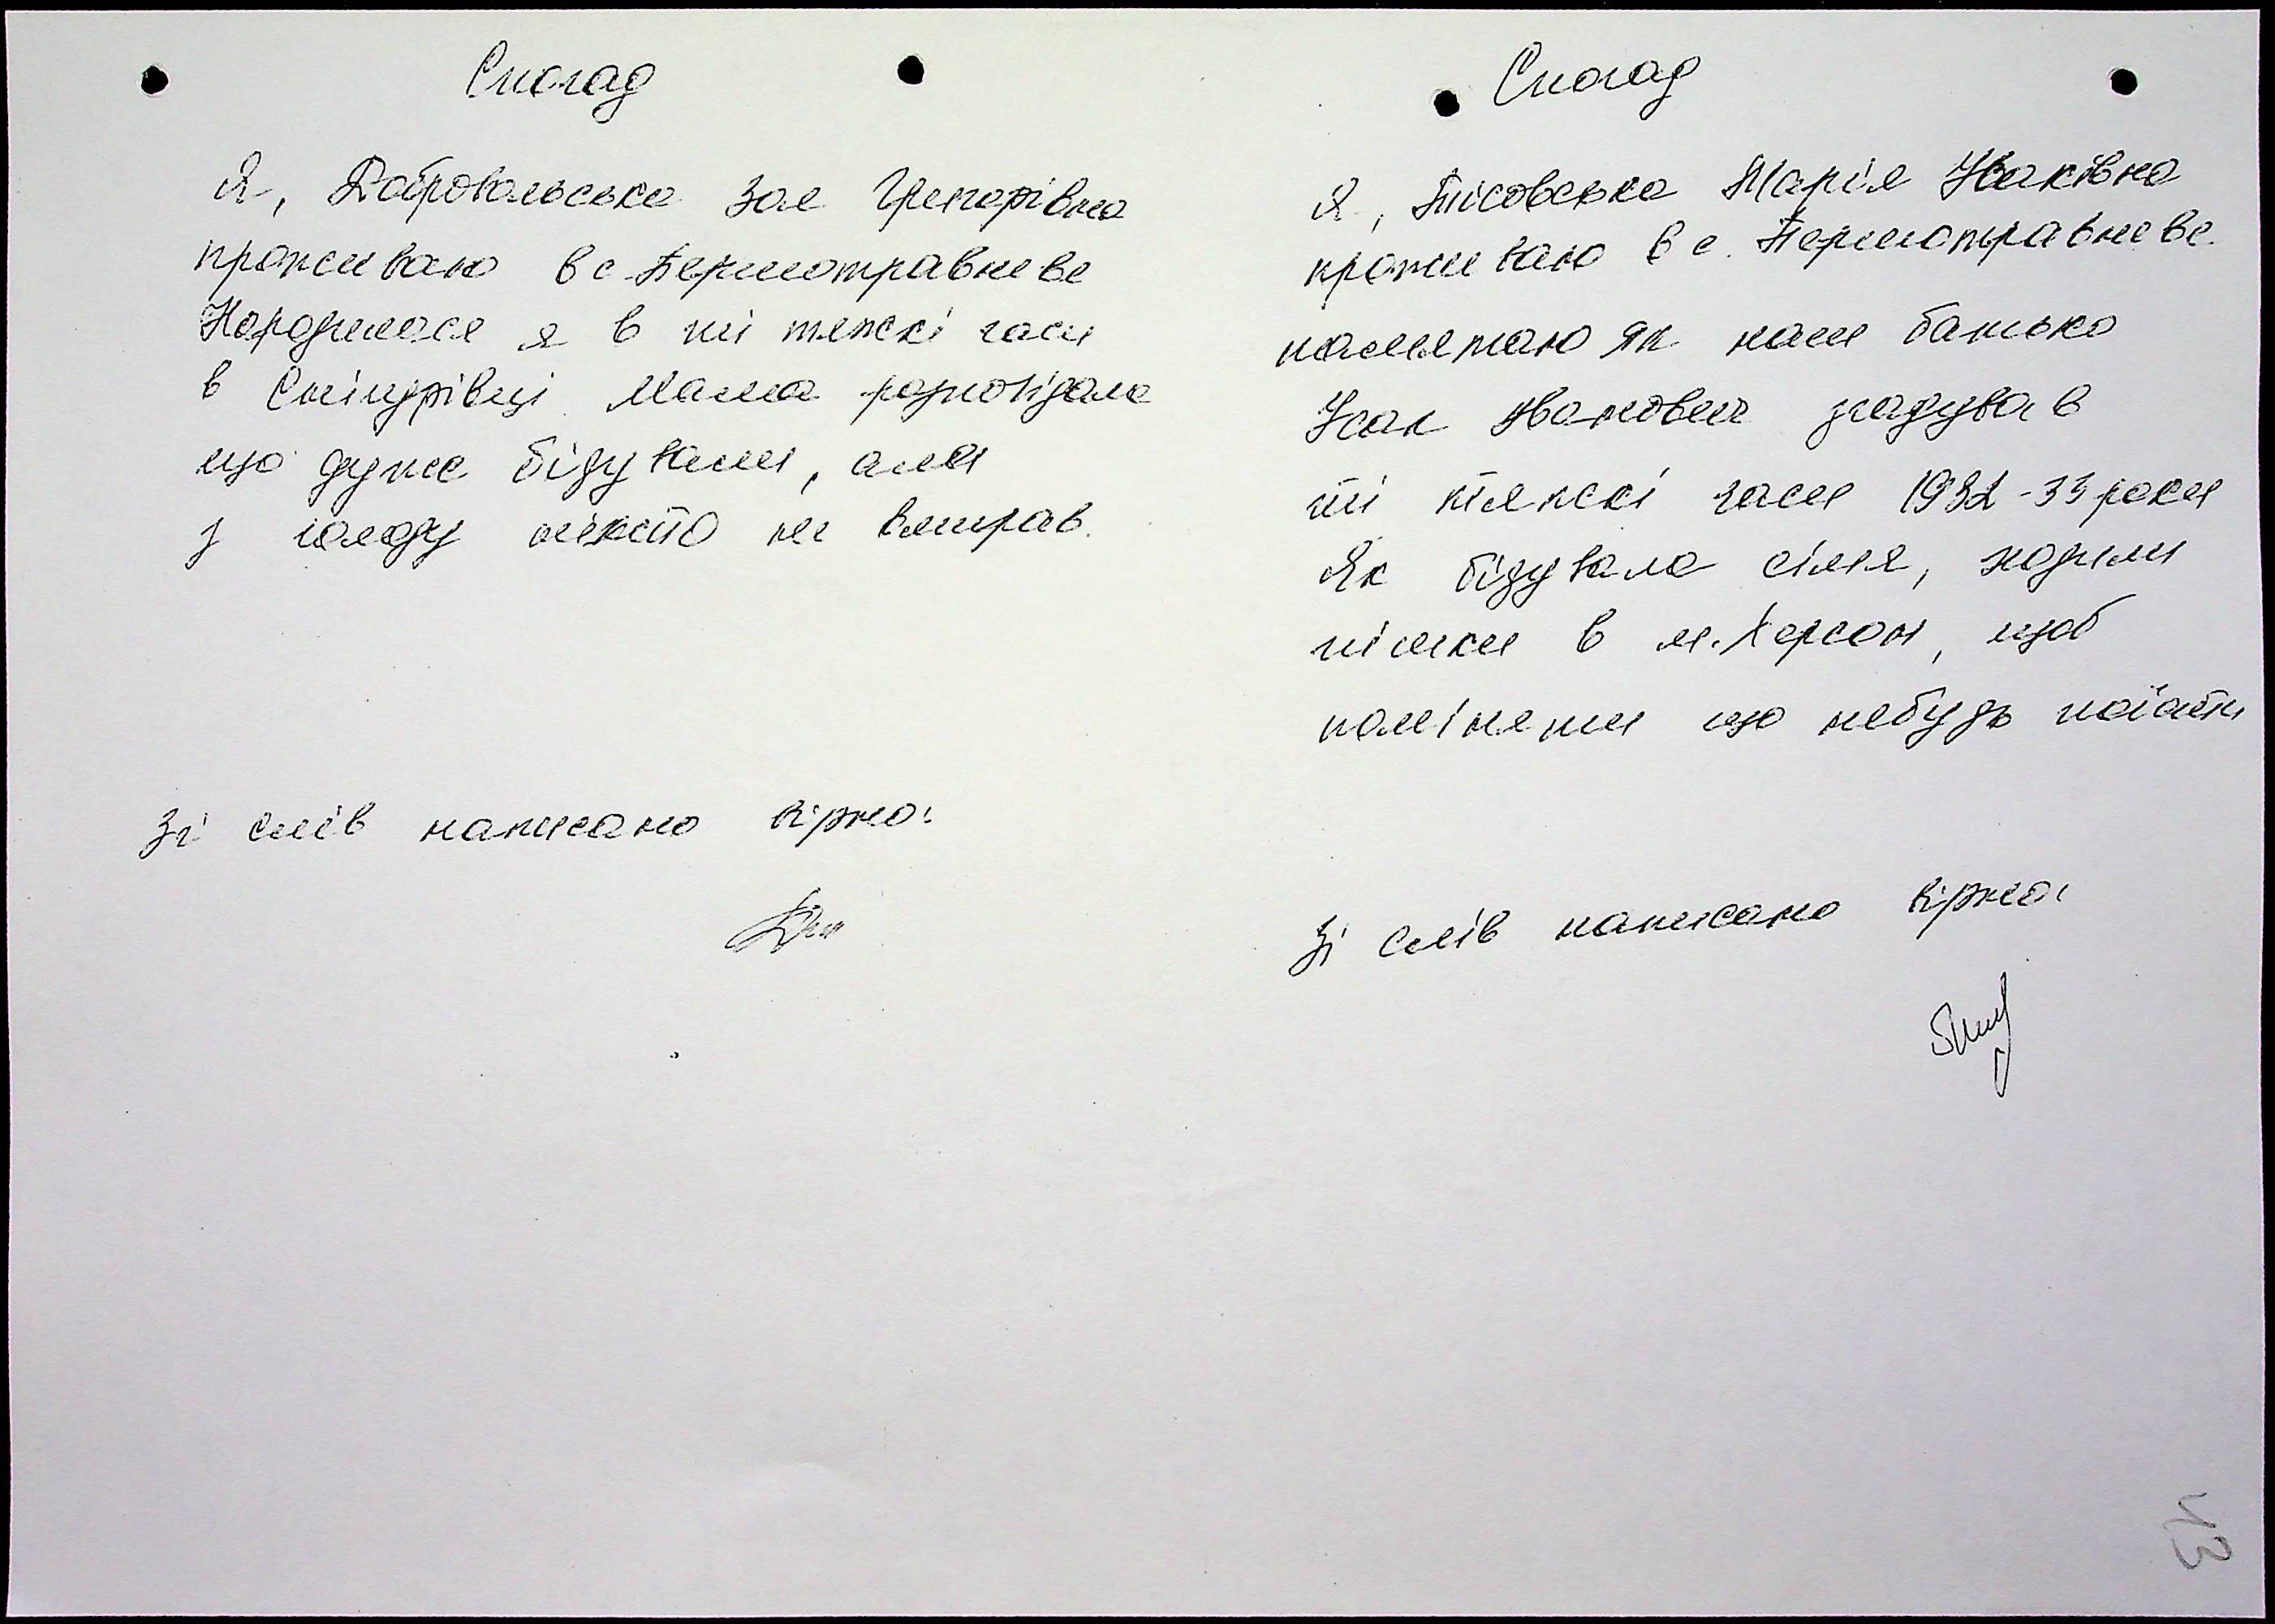 Спогад
Я, Добровольська Зоя Григорівна
проживаю в с Першотравневе
Народилася я в ті тяжкі часи
в Снігурівці Мама розповідала
що дуже бідували, але
з голоду ніхто не вмирав.
Зі слів написано вірно:
Спогад
Я, Пісовська Марія Ісаківна
проживаю в с. Першотравневе.
памятаю як наш батько
Ісак Іванович згадував
ті тяжкі часи 1932-33 роки
Як бідувала сімя, ходили
пішки в м. Херсон, щоб
поміняти що небудь поїсти
Зі слів написано вірно:
43